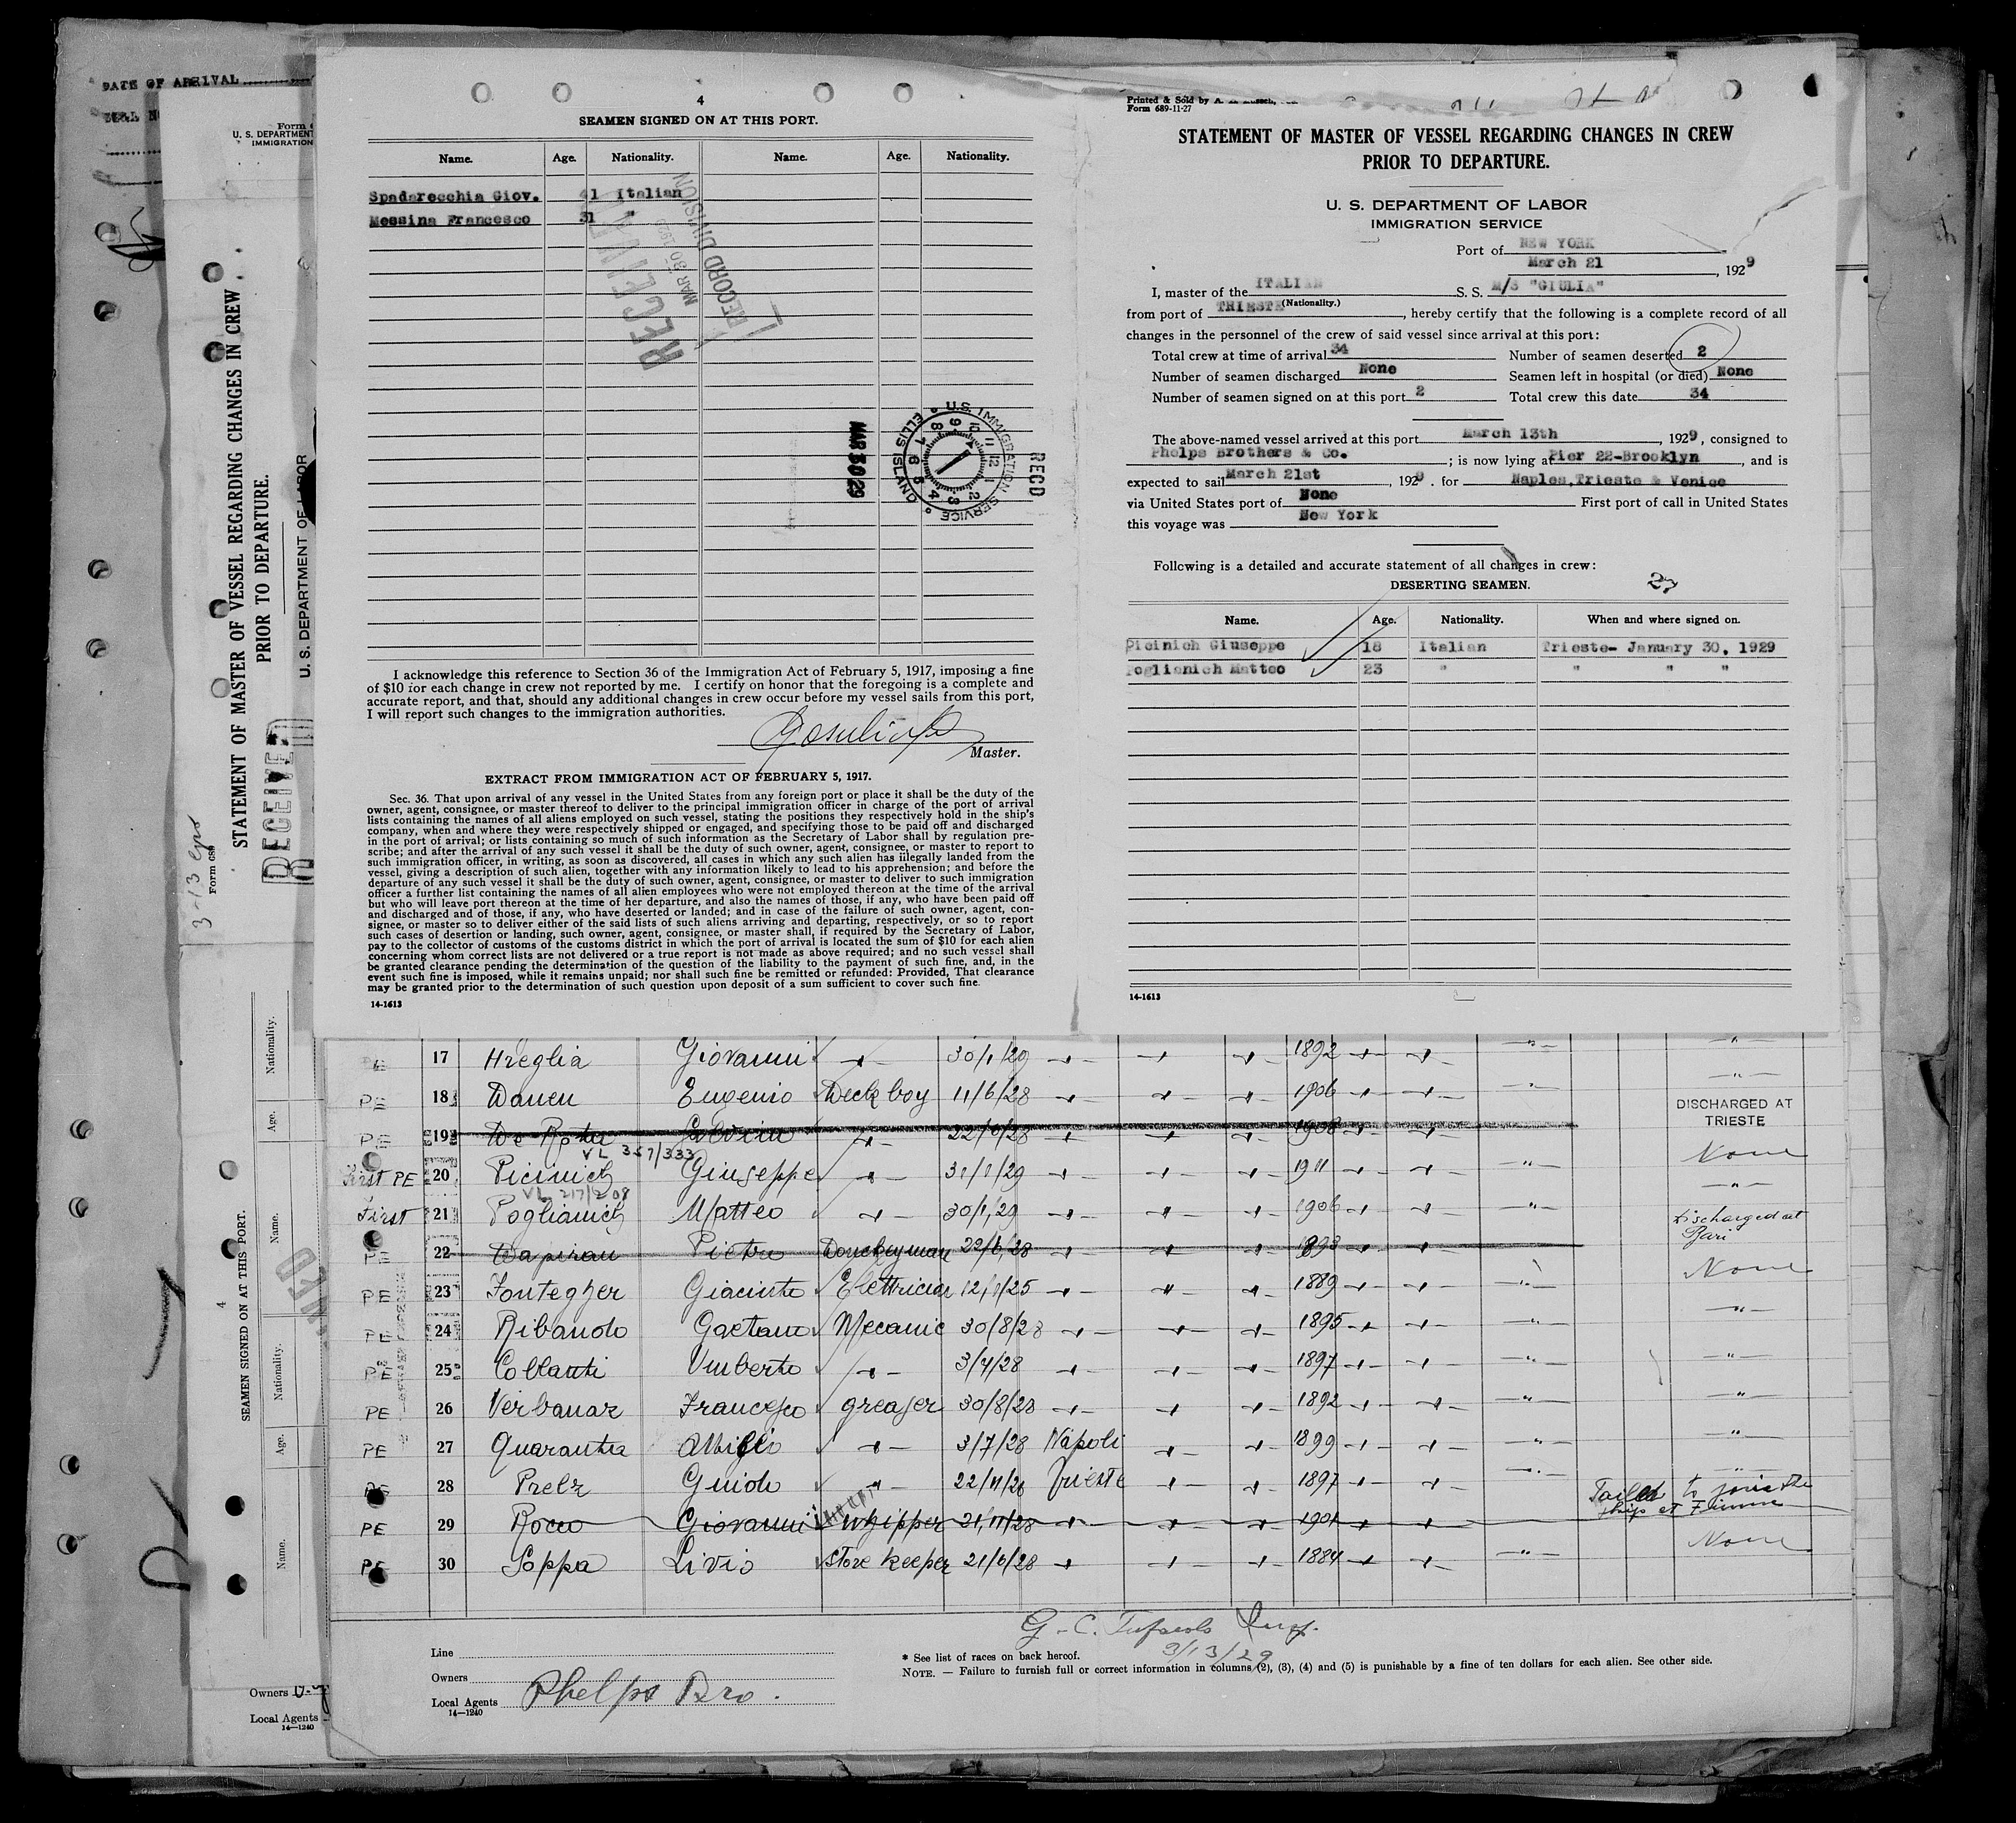 DATE OF ARRIVAL
Form 689
U. S. DEPARTMENT
IMMIGRATION
STATEMENT OF MASTER OF VESSEL REGARDING CHANGES IN CREW
PRIOR TO DEPARTURE.
U. S. DEPARTMENT OF LABOR
RECEIVED
4
SEAMEN SIGNED ON AT THIS PORT.
Nationality.
Age.
Name.
Nationality.
Age.
Name.
Owners
Local Agents
14—1240
4
SEAMEN SIGNED ON AT THIS PORT.
Name. Age. Nationality. Name. Age. Nationality.
Spadarecchia Giov. 41 Italian
Messina Francesco 31 "
RECEIVED
MAR 30 1929
RECORD DIVISION
MAR 30 29
U.S. IMMIGRATION SERVICE
ELLIS ISLAND
RECD
I acknowledge this reference to Section 36 of the Immigration Act of February 5, 1917, imposing a fine
of $10 for each change in crew not reported by me. I certify on honor that the foregoing is a complete and
accurate report, and that, should any additional changes in crew occur before my vessel sails from this port,
I will report such changes to the immigration authorities.
Master.
EXTRACT FROM IMMIGRATION ACT OF FEBRUARY 5, 1917.
Sec. 36. That upon arrival of any vessel in the United States from any foreign port or place it shall be the duty of the
owner, agent, consignee, or master thereof to deliver to the principal immigration officer in charge of the port of arrival
lists containing the names of all aliens employed on such vessel, stating the positions they respectively hold in the ship's
company, when and where they were respectively shipped or engaged, and specifying those to be paid off and discharged
in the port of arrival; or lists containing so much of such information as the Secretary of Labor shall by regulation pre-
scribe; and after the arrival of any such vessel it shall be the duty of such owner, agent, consignee, or master to report to
such immigration officer, in writing, as soon as discovered, all cases in which any such alien has illegally landed from the
vessel, giving a description of such alien, together with any information likely to lead to his apprehension; and before the
departure of any such vessel it shall be the duty of such owner, agent, consignee, or master to deliver to such immigration
officer a further list containing the names of all alien employees who were not employed thereon at the time of the arrival
but who will leave port thereon at the time of her departure, and also the names of those, if any, who have been paid off
and discharged and of those, if any, who have deserted or landed; and in case of the failure of such owner, agent, con-
signee, or master so to deliver either of the said lists of such aliens arriving and departing, respectively, or so to report
such cases of desertion or landing, such owner, agent, consignee, or master shall, if required by the Secretary of Labor,
pay to the collector of customs of the customs district in which the port of arrival is located the sum of $10 for each alien
concerning whom correct lists are not delivered or a true report is not made as above required; and no such vessel shall
be granted clearance pending the determination of the question of the liability to the payment of such fine, and, in the
event such fine is imposed, while it remains unpaid; nor shall such fine be remitted or refunded: Provided, That clearance
may be granted prior to the determination of such question upon deposit of a sum sufficient to cover such fine.
14-1613
Printed & Sold by
Form 689-11-27
STATEMENT OF MASTER OF VESSEL REGARDING CHANGES IN CREW
PRIOR TO DEPARTURE.
U. S. DEPARTMENT OF LABOR
IMMIGRATION SERVICE
Port of NEW YORK
March 21, 1929
I, master of the ITALIAN S. S. M/S "GIULIA"
(Nationality.)
from port of TRIESTE, hereby certify that the following is a complete record of all
changes in the personnel of the crew of said vessel since arrival at this port:
Total crew at time of arrival 34 Number of seamen deserted 2
Number of seamen discharged None Seamen left in hospital (or died) None
Number of seamen signed on at this port 2 Total crew this date 34
The above-named vessel arrived at this port March 13th, 1929, consigned to
Phelps Brothers & Co.; is now lying at Pier 22-Brooklyn, and is
expected to sail March 21st, 1929. for Naples, Trieste & Venice
via United States port of None First port of call in United States
this voyage was New York
Following is a detailed and accurate statement of all changes in crew:
DESERTING SEAMEN.
Name. Age. Nationality. When and where signed on.
Picinich Giuseppe 18 Italian Trieste- January 30, 1929
Poglianich Matteo 23 " " " "
14-1613
17 Hreglia Giovanni 30/1/29 1892
PE 18 Daneu Eugenio Deck boy 11/6/28 1906
DISCHARGED AT
TRIESTE
PE 19 1908
VL 357/333
First PE 20 Picinich Giuseppe 31/1/29 1911 None
VL 217/208
First 21 Poglianich Matteo 30/1/29 1906
Discharged at
Bari
PE 22 Pietro Donckeyman 22/6/28 1893
PE 23 Fontegher Giacinto Elettrician 12/1/25 1889 None
PE 24 Ribaudo Gaetano Mecanic 30/8/28 1895
PE 25 Collanti Umberto 3/7/28 1897
PE 26 Verbanaz Francesco greaser 30/8/28 1892
PE 27 Quarantta Attilio 3/7/28 Napoli 1899
28 Prelz Guido Trieste 1897
Failed to join the
ship at Fiume
PE 29 Rocco Giovanni Whipper 21/11/28 1901
PE 30 Poppa Livio Store keeper 21/6/28 1884 None
3/13/29
Line
* See list of races on back hereof.
Owners
NOTE. — Failure to furnish full or correct information in columns (2), (3), (4) and (5) is punishable by a fine of ten dollars for each alien. See other side.
Local Agents Phelps Bro.
14—1240